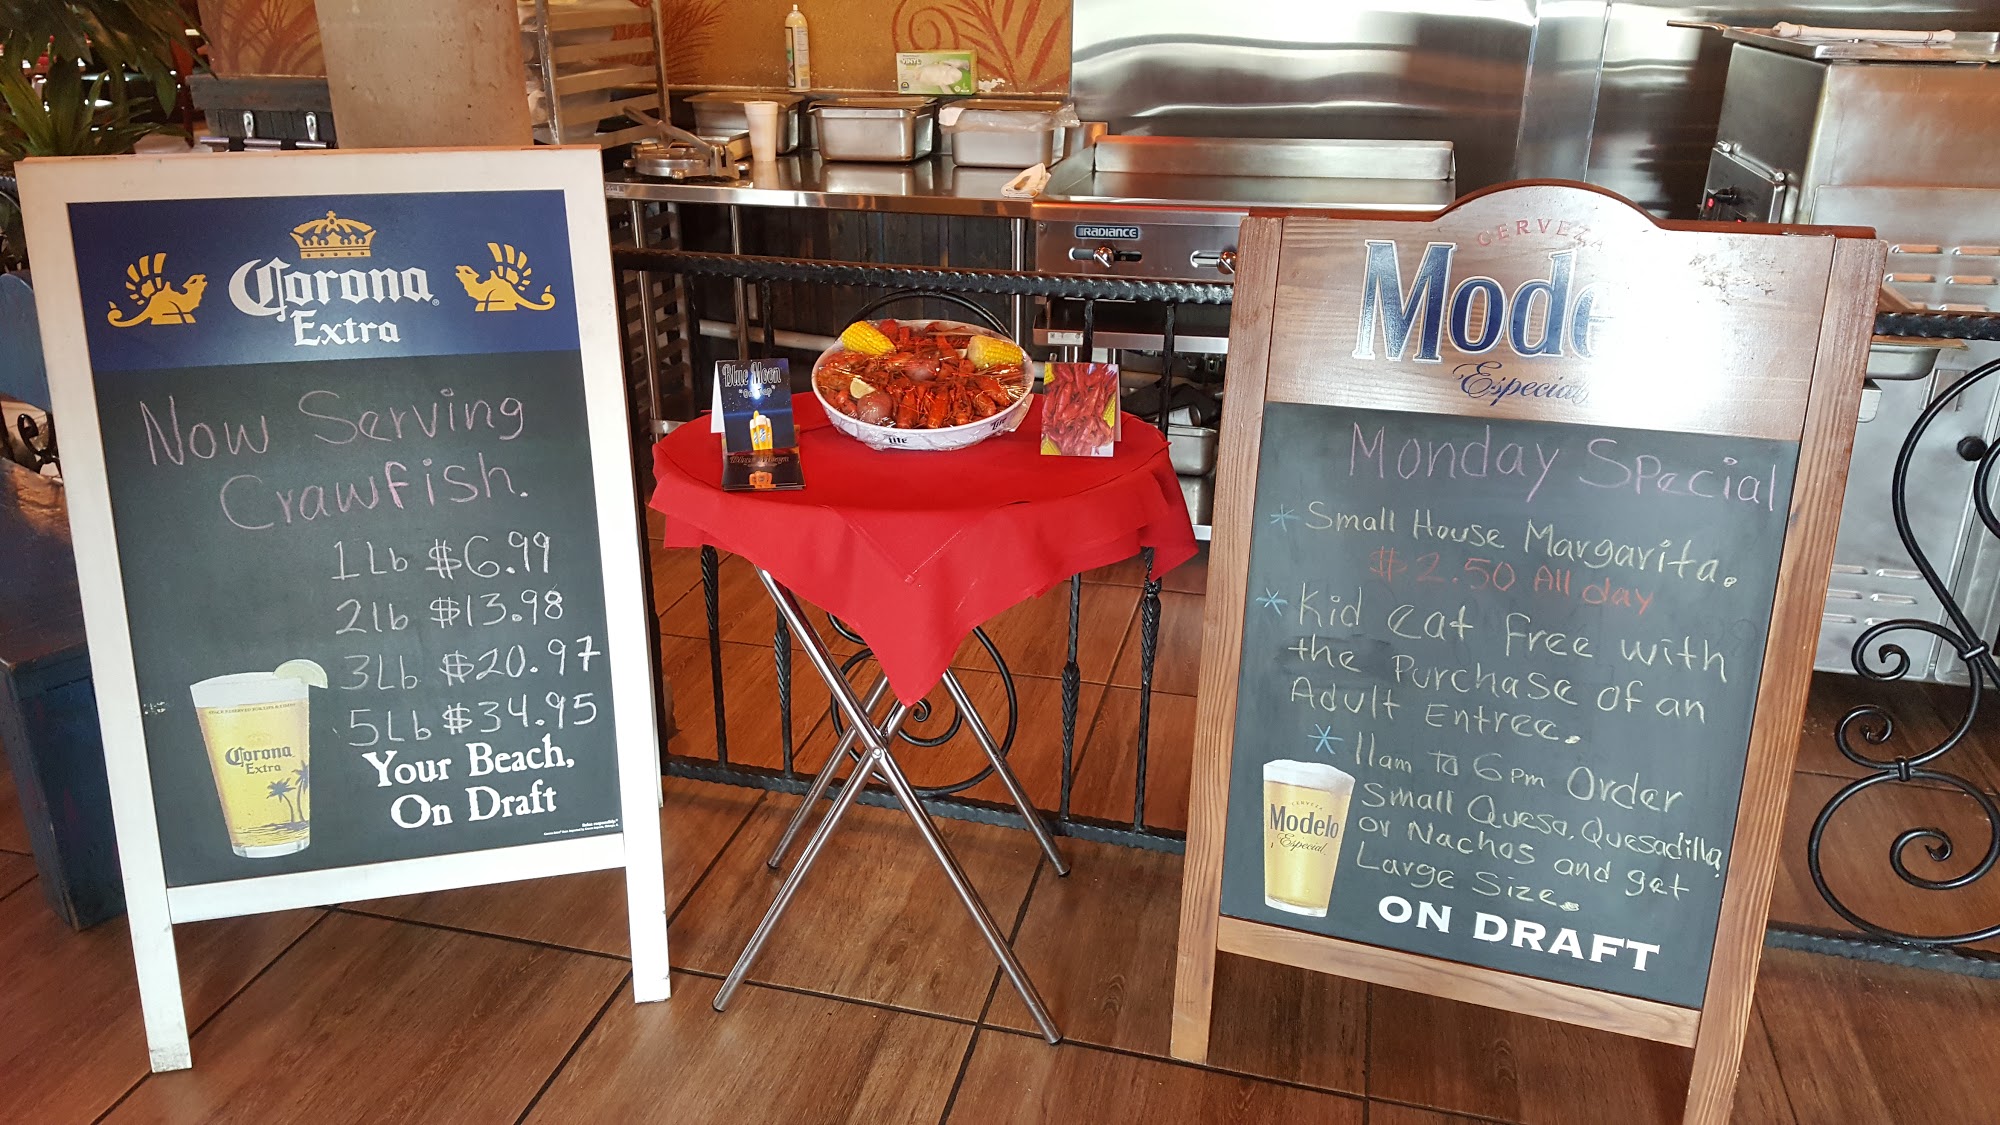 Corona
Extra
Now Serving
Crawfish.
1 Lb $6.99
2lb $13.98
3Lb $20.97
5Lb $34.95
Corona
Extra
Your Beach,
On Draft
Blue Moon
Lite
VINYL
RADIANCE
CERVEZA
Especial
Monday Special
* Small House Margarita.
$2.50 All day
* Kid eat free with
the Purchase of an
Adult Entree.
* 11am To 6pm Order
Small Queso, Quesadilla,
or Nachos and get
Large Size.
CERVEZA
Modelo
Especial
ON DRAFT